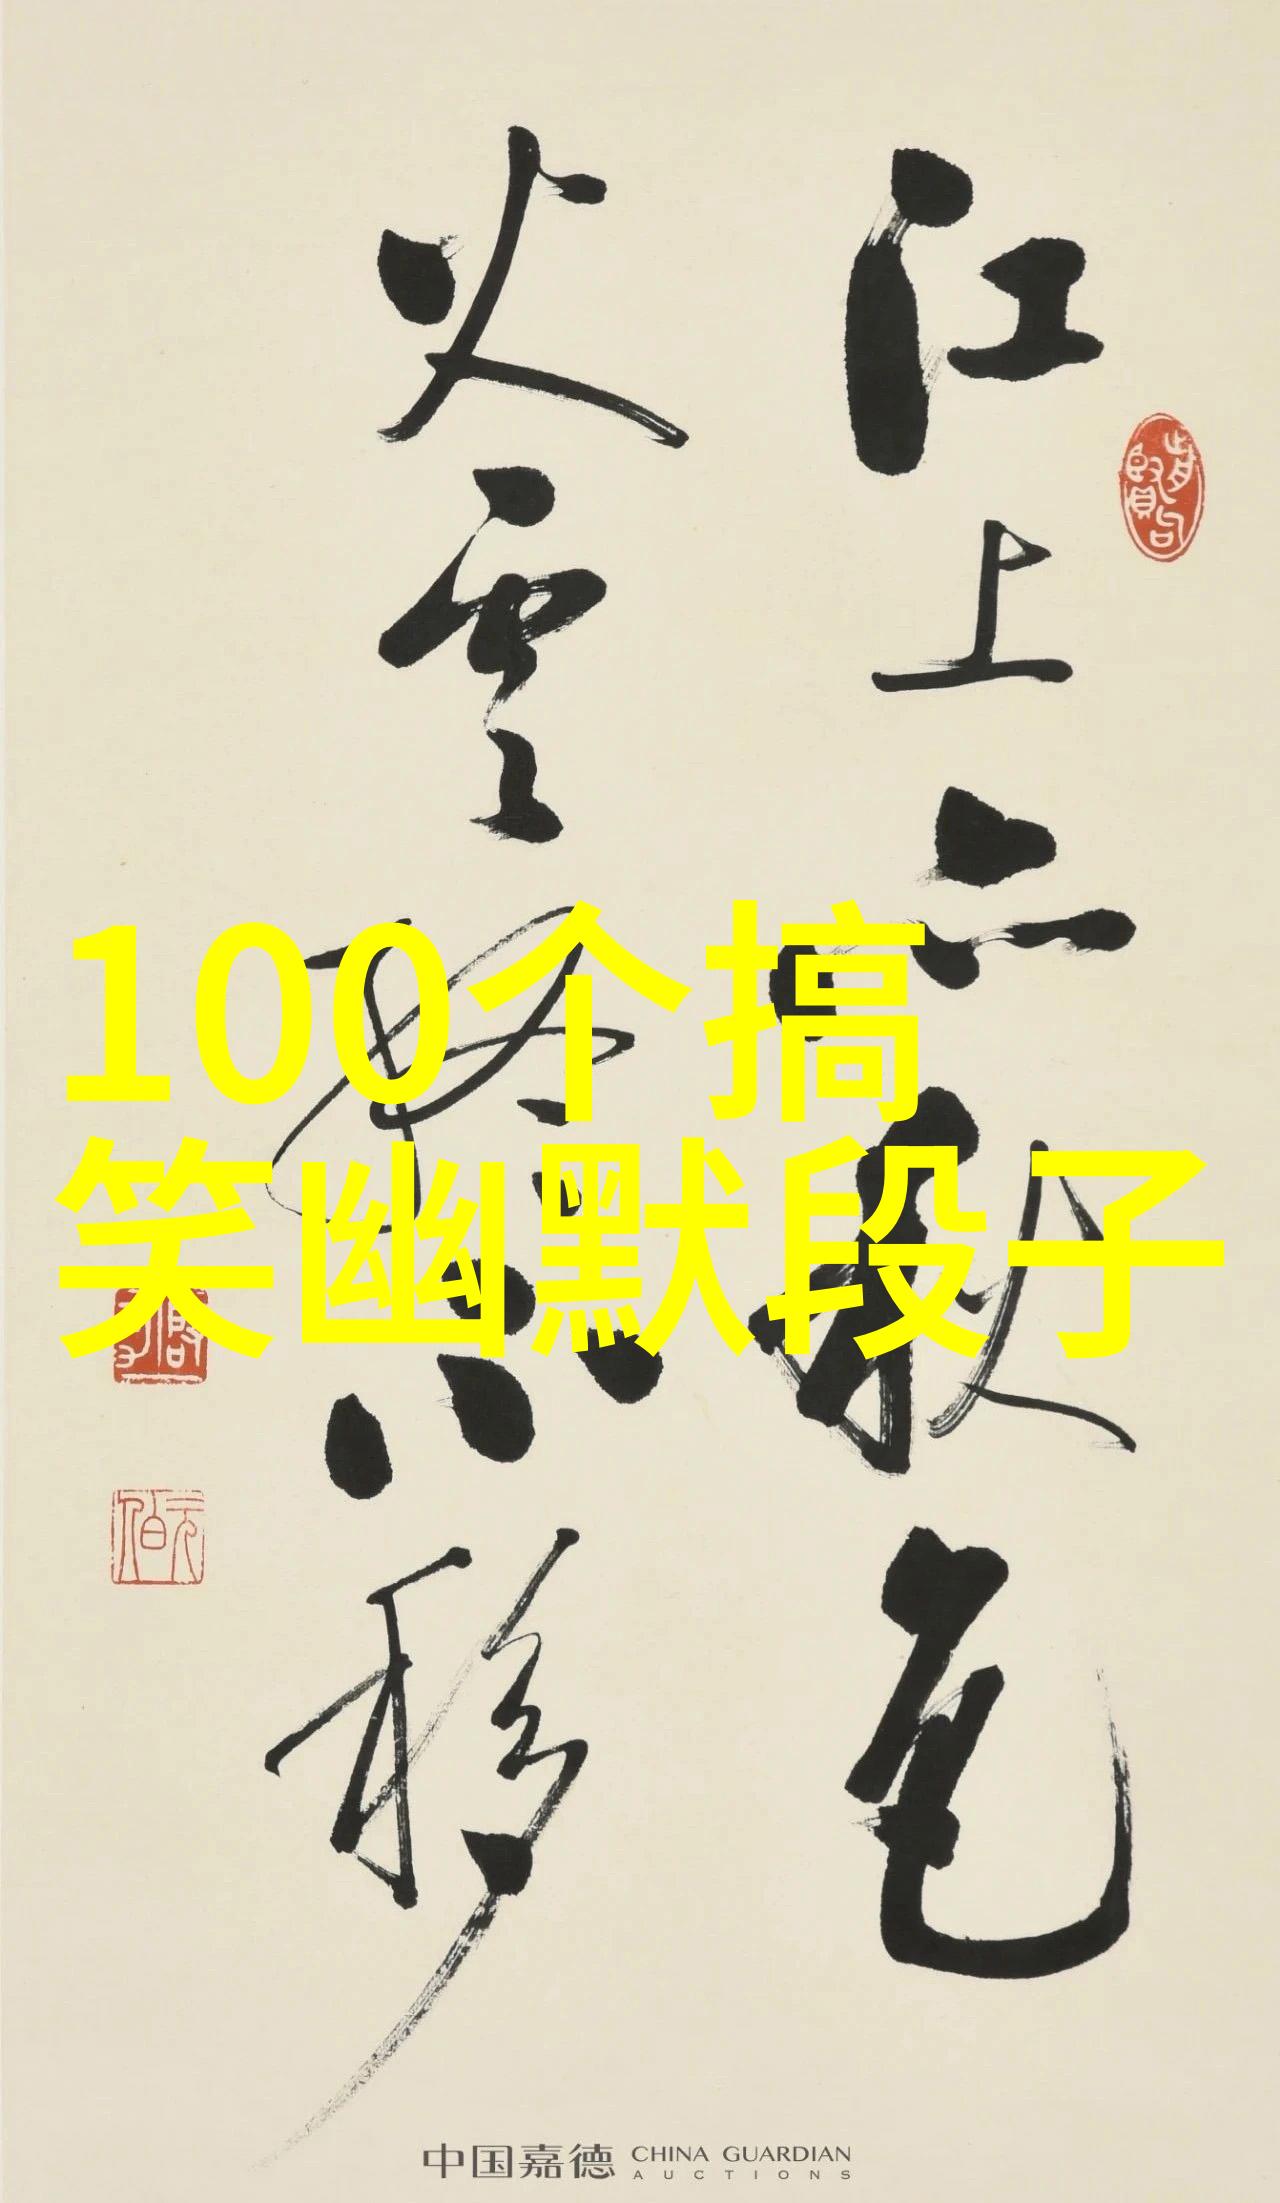 江上亦秋色
火雲終不移
元伯
100个搞
笑幽默段子
中国嘉德 CHINA GUARDIAN
AUCTIONS